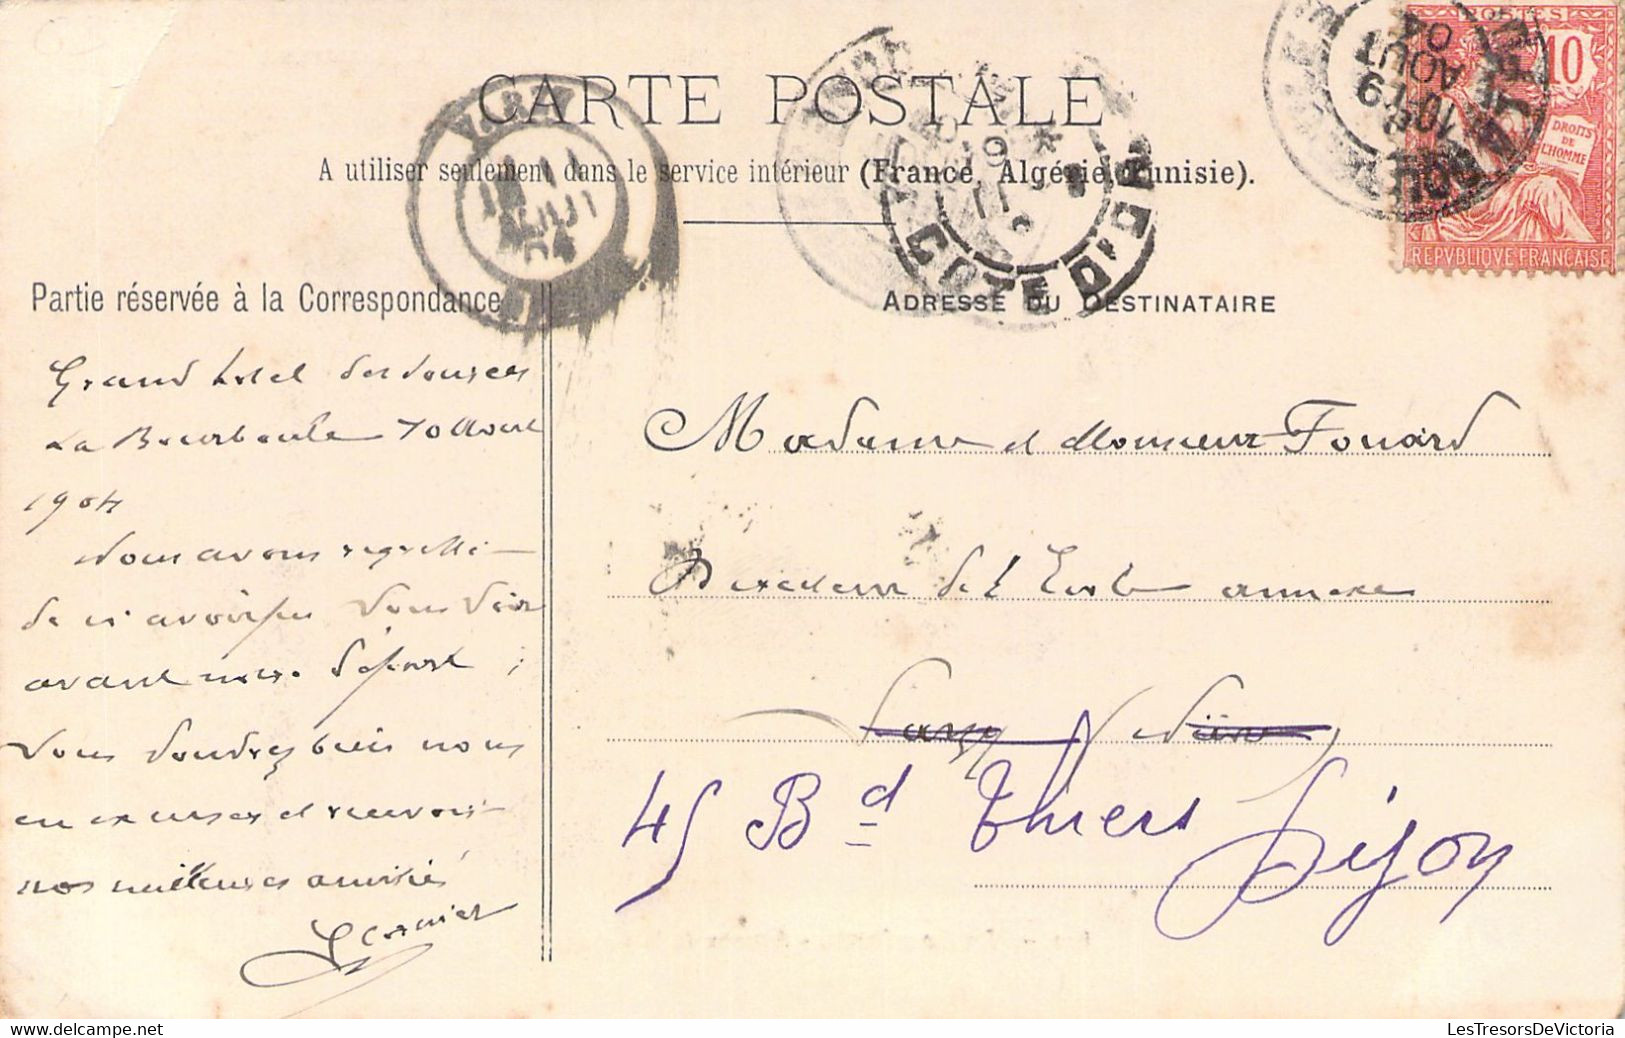 CARTE POSTALE
A utiliser seulement dans le service intérieur (France, Algérie, Tunisie).
POSTES
10
DROITS DE L'HOMME
REPVBLIQVE FRANÇAISE
LA BOURBOULE
10 AOUT 04
COTE D'OR
Partie réservée à la Correspondance
ADRESSE DU DESTINATAIRE
Grand hotel des sources
La Bourboule 10 Aout
1904
Nous avons regretté
de n'avoir pu vous voir
avant notre départ ;
vous voudrez bien nous
en excuser et recevoir
nos meilleures amitiés
Madame et Monsieur Fouard
Directeur de l'Ecole annexe
45 Bd Thiers Dijon
LesTresorsDeVictoria.com